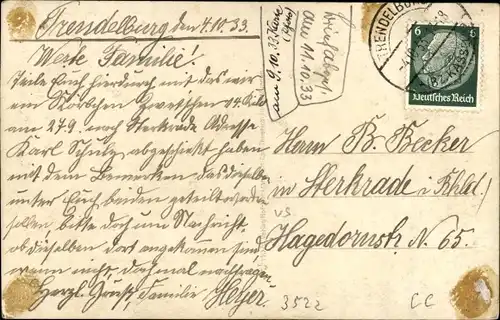 Trendelburg den 4.10.33
Werte Familie!
Teile Euch hierdurch mit das wir
ein Körbchen Zwetschen 14 Kilo
am 27.9. nach Sterkrade Adresse
Karl Schulz abgeschickt haben
mit dem Bemerken das dieselben
unter Euch beiden geteilt werden
sollen, bitte doch um Nachricht,
ob dieselben dort angekommen sind
wenn nicht, doch mal nachfragen.
Herzl. Grüße Familie Heyer.
am 9.10.33 Karte
am 11.10.33
TRENDELBURG
6 6
Deutsches Reich
Herrn B. Becker
in Sterkrade i. Rhld.
Hagedornstr. N. 65.
VS
3522
CC